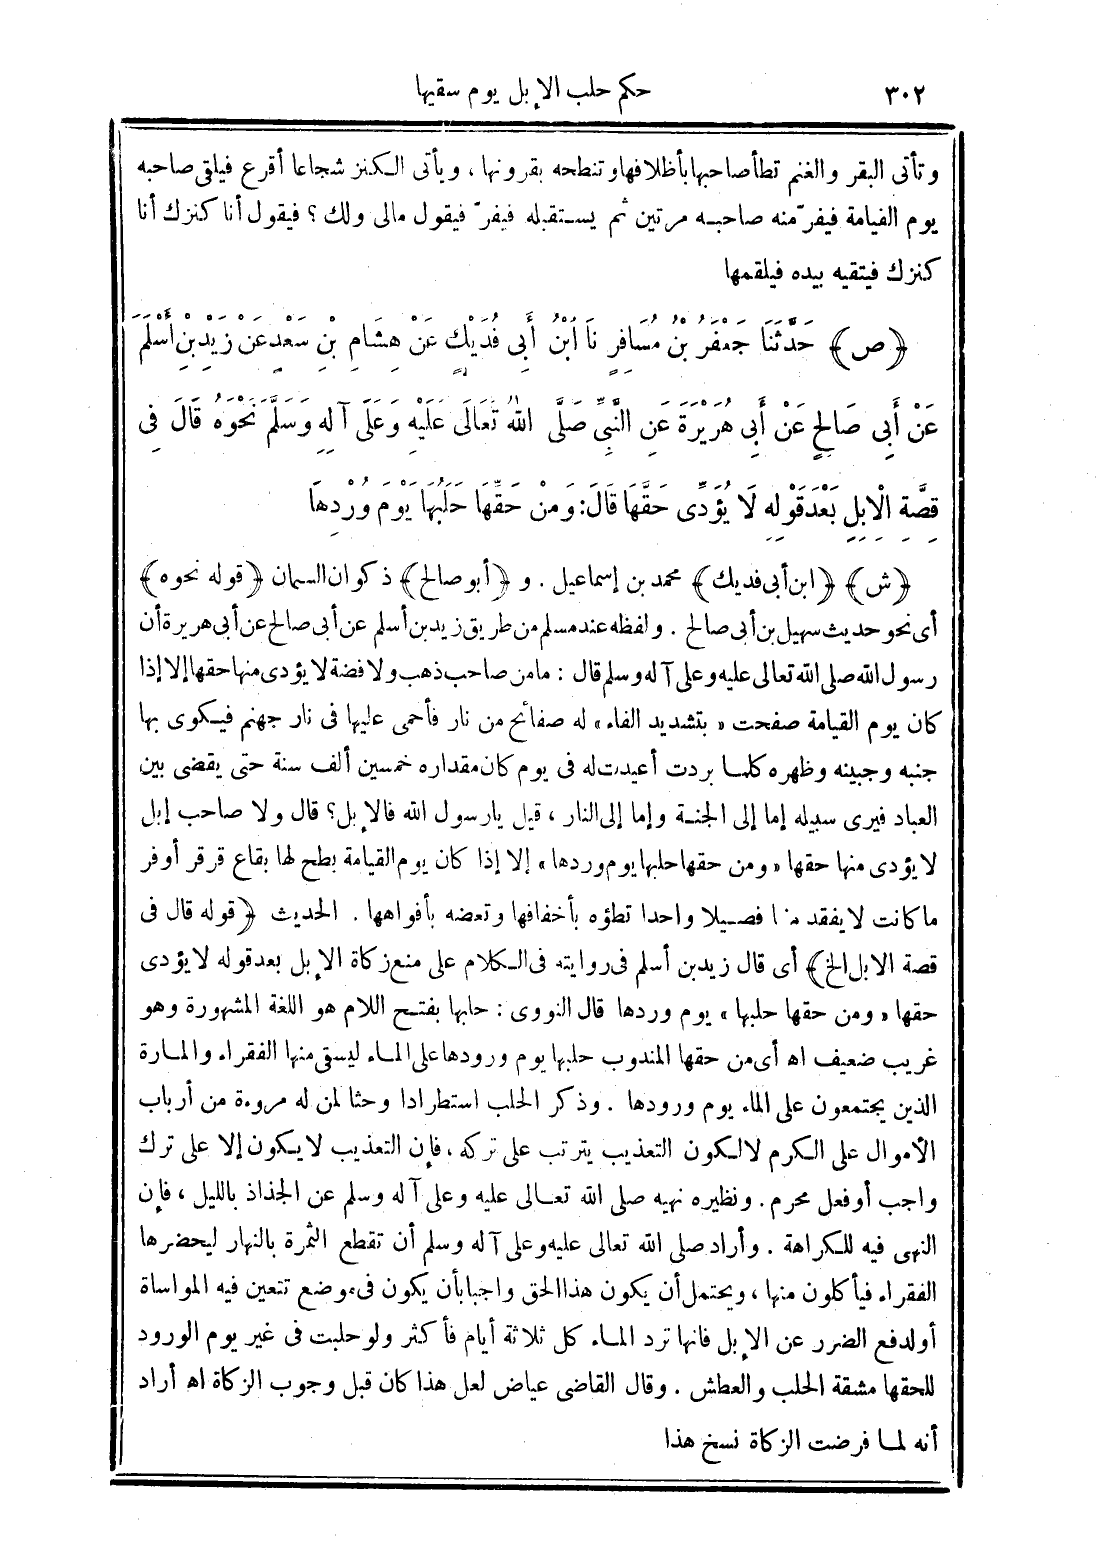 ٣٠٢ حكم حلب الإبل يوم سقيها
وتأتى البقر والغنم تطأ صاحبها بأظلافها وتنطحه بقرونها ، ويأتى الكنز شجاعا أقرع فيلقى صاحبه
يوم القيامة فيفرّ منه صاحبه مرتين ثم يستقبله فيفرّ فيقول مالى ولك ؟ فيقول أنا كنزك أنا
كنزك فيتقيه بيده فيلقمها
﴿ص﴾ حَدَّثَنَا جَعْفَرُ بْنُ مُسَافِرٍ نَا ابْنُ أَبِى فُدَيْكٍ عَنْ هِشَامِ بْنِ سَعْدٍ عَنْ زَيْدِ بْنِ أَسْلَمَ
عَنْ أَبِى صَالِحٍ عَنْ أَبِى هُرَيْرَةَ عَنِ النَّبِىِّ صَلَّى اللهُ تَعَالَى عَلَيْهِ وَعَلَى آلِهِ وَسَلَّمَ نَحْوَهُ قَالَ فِى
قِصَّةِ الْإِبِلِ بَعْدَ قَوْلِهِ لَا يُؤَدِّى حَقَّهَا قَالَ: وَمِنْ حَقِّهَا حَلَبُهَا يَوْمَ وُرْدِهَا
﴿ش﴾ ﴿ابن أبى فديك﴾ محمد بن إسماعيل . و ﴿أبو صالح﴾ ذكوان السمان ﴿قوله نحوه﴾
أى نحو حديث سهيل بن أبى صالح . ولفظه عند مسلم من طريق زيد بن أسلم عن أبى صالح عن أبى هريرة أن
رسول الله صلى الله تعالى عليه وعلى آله وسلم قال : ما من صاحب ذهب ولا فضة لا يؤدى منها حقها إلا إذا
كان يوم القيامة صفحت « بتشديد الفاء » له صفائح من نار فأحمى عليها فى نار جهنم فيكوى بها
جنبه وجبينه وظهره كلما بردت أعيدت له فى يوم كان مقداره خمسين ألف سنة حتى يقضى بين
العباد فيرى سبيله إما إلى الجنة وإما إلى النار ، قيل يا رسول الله فالإبل؟ قال ولا صاحب إبل
لا يؤدى منها حقها « ومن حقها حلبها يوم وردها » إلا إذا كان يوم القيامة بطح لها بقاع قرقر أوفر
ما كانت لا يفقد منها فصيلا واحدا تطؤه بأخفافها وتعضه بأفواهها . الحديث ﴿قوله قال فى
قصة الابل الخ﴾ أى قال زيد بن أسلم فى روايته فى الكلام على منع زكاة الإبل بعد قوله لا يؤدى
حقها « ومن حقها حلبها » يوم وردها قال النووى : حلبها بفتح اللام هو اللغة المشهورة وهو
غريب ضعيف اه أى من حقها المندوب حلبها يوم ورودها على الماء ليسقى منها الفقراء والمارة
الذين يجتمعون على الماء يوم ورودها . وذكر الحلب استطرادا وحثا لمن له مروءة من أرباب
الأموال على الكرم لا لكون التعذيب يترتب على تركه ، فإن التعذيب لا يكون إلا على ترك
واجب أو فعل محرم . ونظيره نهيه صلى الله تعالى عليه وعلى آله وسلم عن الجذاذ بالليل ، فإن
النهى فيه للكراهة . وأراد صلى الله تعالى عليه وعلى آله وسلم أن تقطع الثمرة بالنهار ليحضرها
الفقراء فيأكلون منها ، ويحتمل أن يكون هذا الحق واجبا بأن يكون فى موضع تتعين فيه المواساة
أو لدفع الضرر عن الإبل فانها ترد الماء كل ثلاثة أيام فأكثر ولو حلبت فى غير يوم الورود
للحقها مشقة الحلب والعطش . وقال القاضى عياض لعل هذا كان قبل وجوب الزكاة اه أراد
أنه لما فرضت الزكاة نسخ هذا